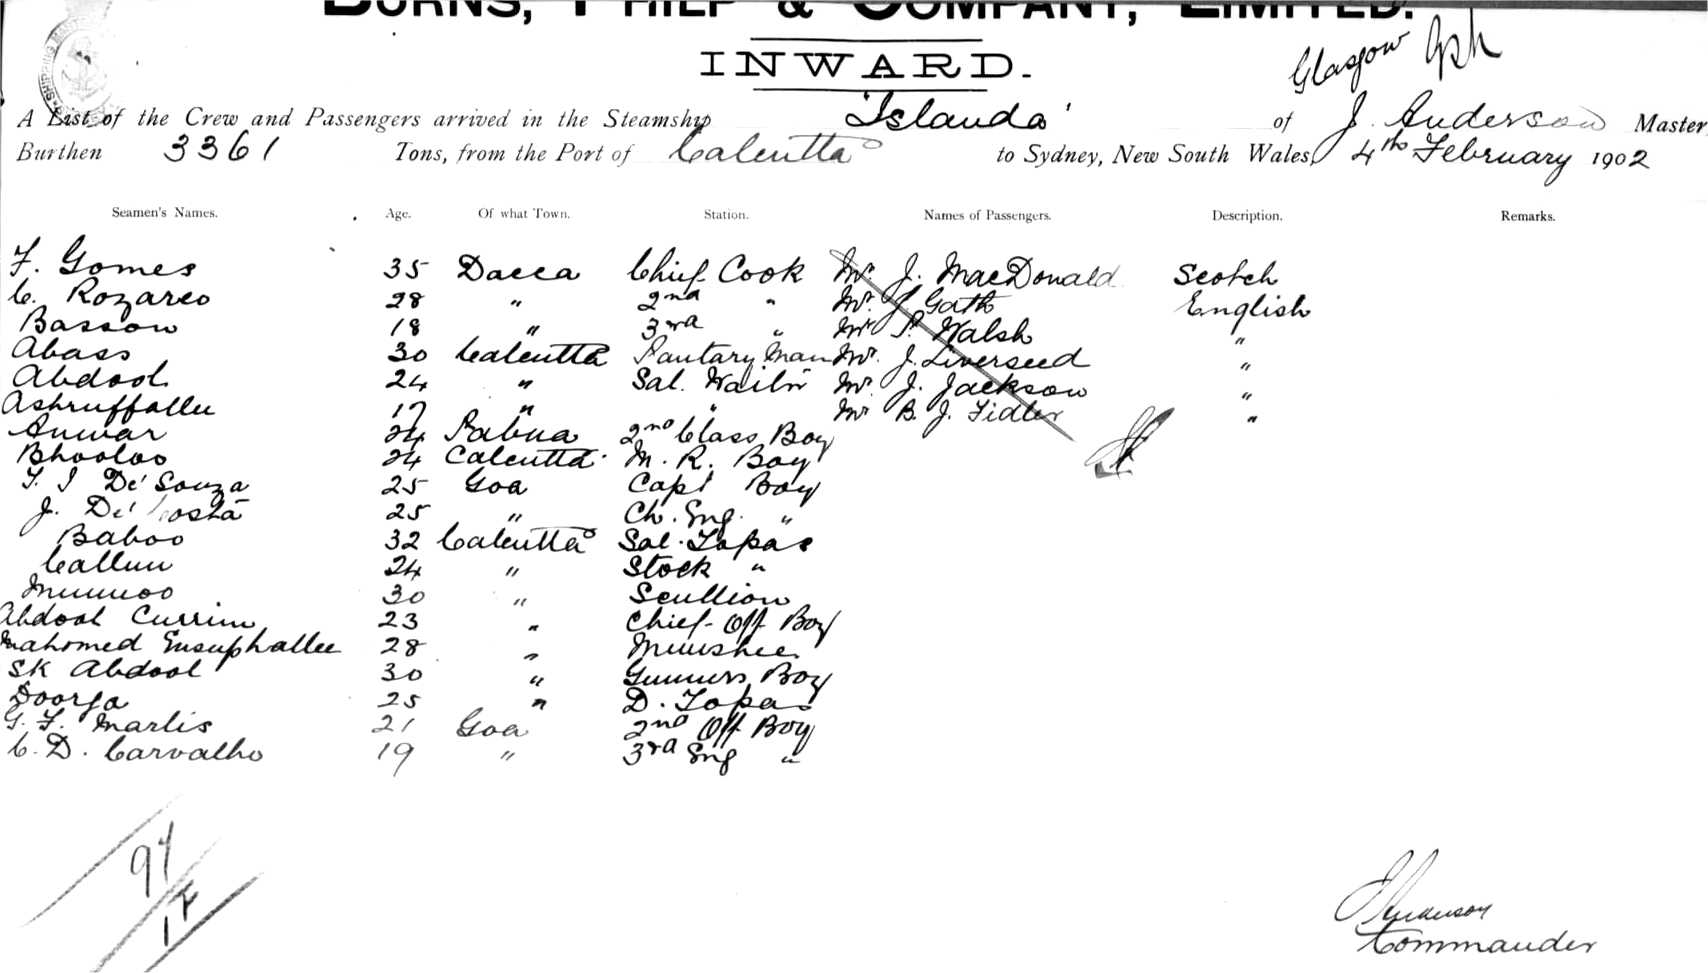 BURNS, PHILP & COMPANY, LIMITED.
INWARD.
Glasgow
A List of the Crew and Passengers arrived in the Steamship 'Islanda' of J. Anderson Master
Burthen 3361 Tons, from the Port of Calcutta to Sydney, New South Wales, 4th February 1902
Seamen's Names. Age. Of what Town. Station. Names of Passengers. Description. Remarks.
F. Gomes 35 Dacca Chief Cook Mr. J. MacDonald Scotch
C. Rozareo 28 " 2nd " Mr. J Gath English
Basson 18 " 3rd " Mr P. Walsh "
Abass 30 Calcutta Pantary Man Mr. J. Liverseed "
Abdool 24 " Sal. Waiter Mr. J. Jackson "
Ashruffallee 17 " " Mr B. J. Fidler "
Anwar 24 Pabna 2nd Class Boy
Bhooloo 24 Calcutta M. R. Boy
F. J De'Souza 25 Goa Capt Boy
J. De'Costa 25 " Ch. Eng. "
Baboo 32 Calcutta Sal. Topas
Callun 24 " Stock "
Munnoo 30 " Scullion
Abdool Currim 23 " Chief Off Boy
Mahomed Eusuphallee 28 " Munshee
SK Abdool 30 " Gunners Boy
Doorga 25 " D. Topas
G. F. Martis 21 Goa 2nd Off Boy
C. D. Carvalho 19 " 3rd Eng "
J Anderson
Commander